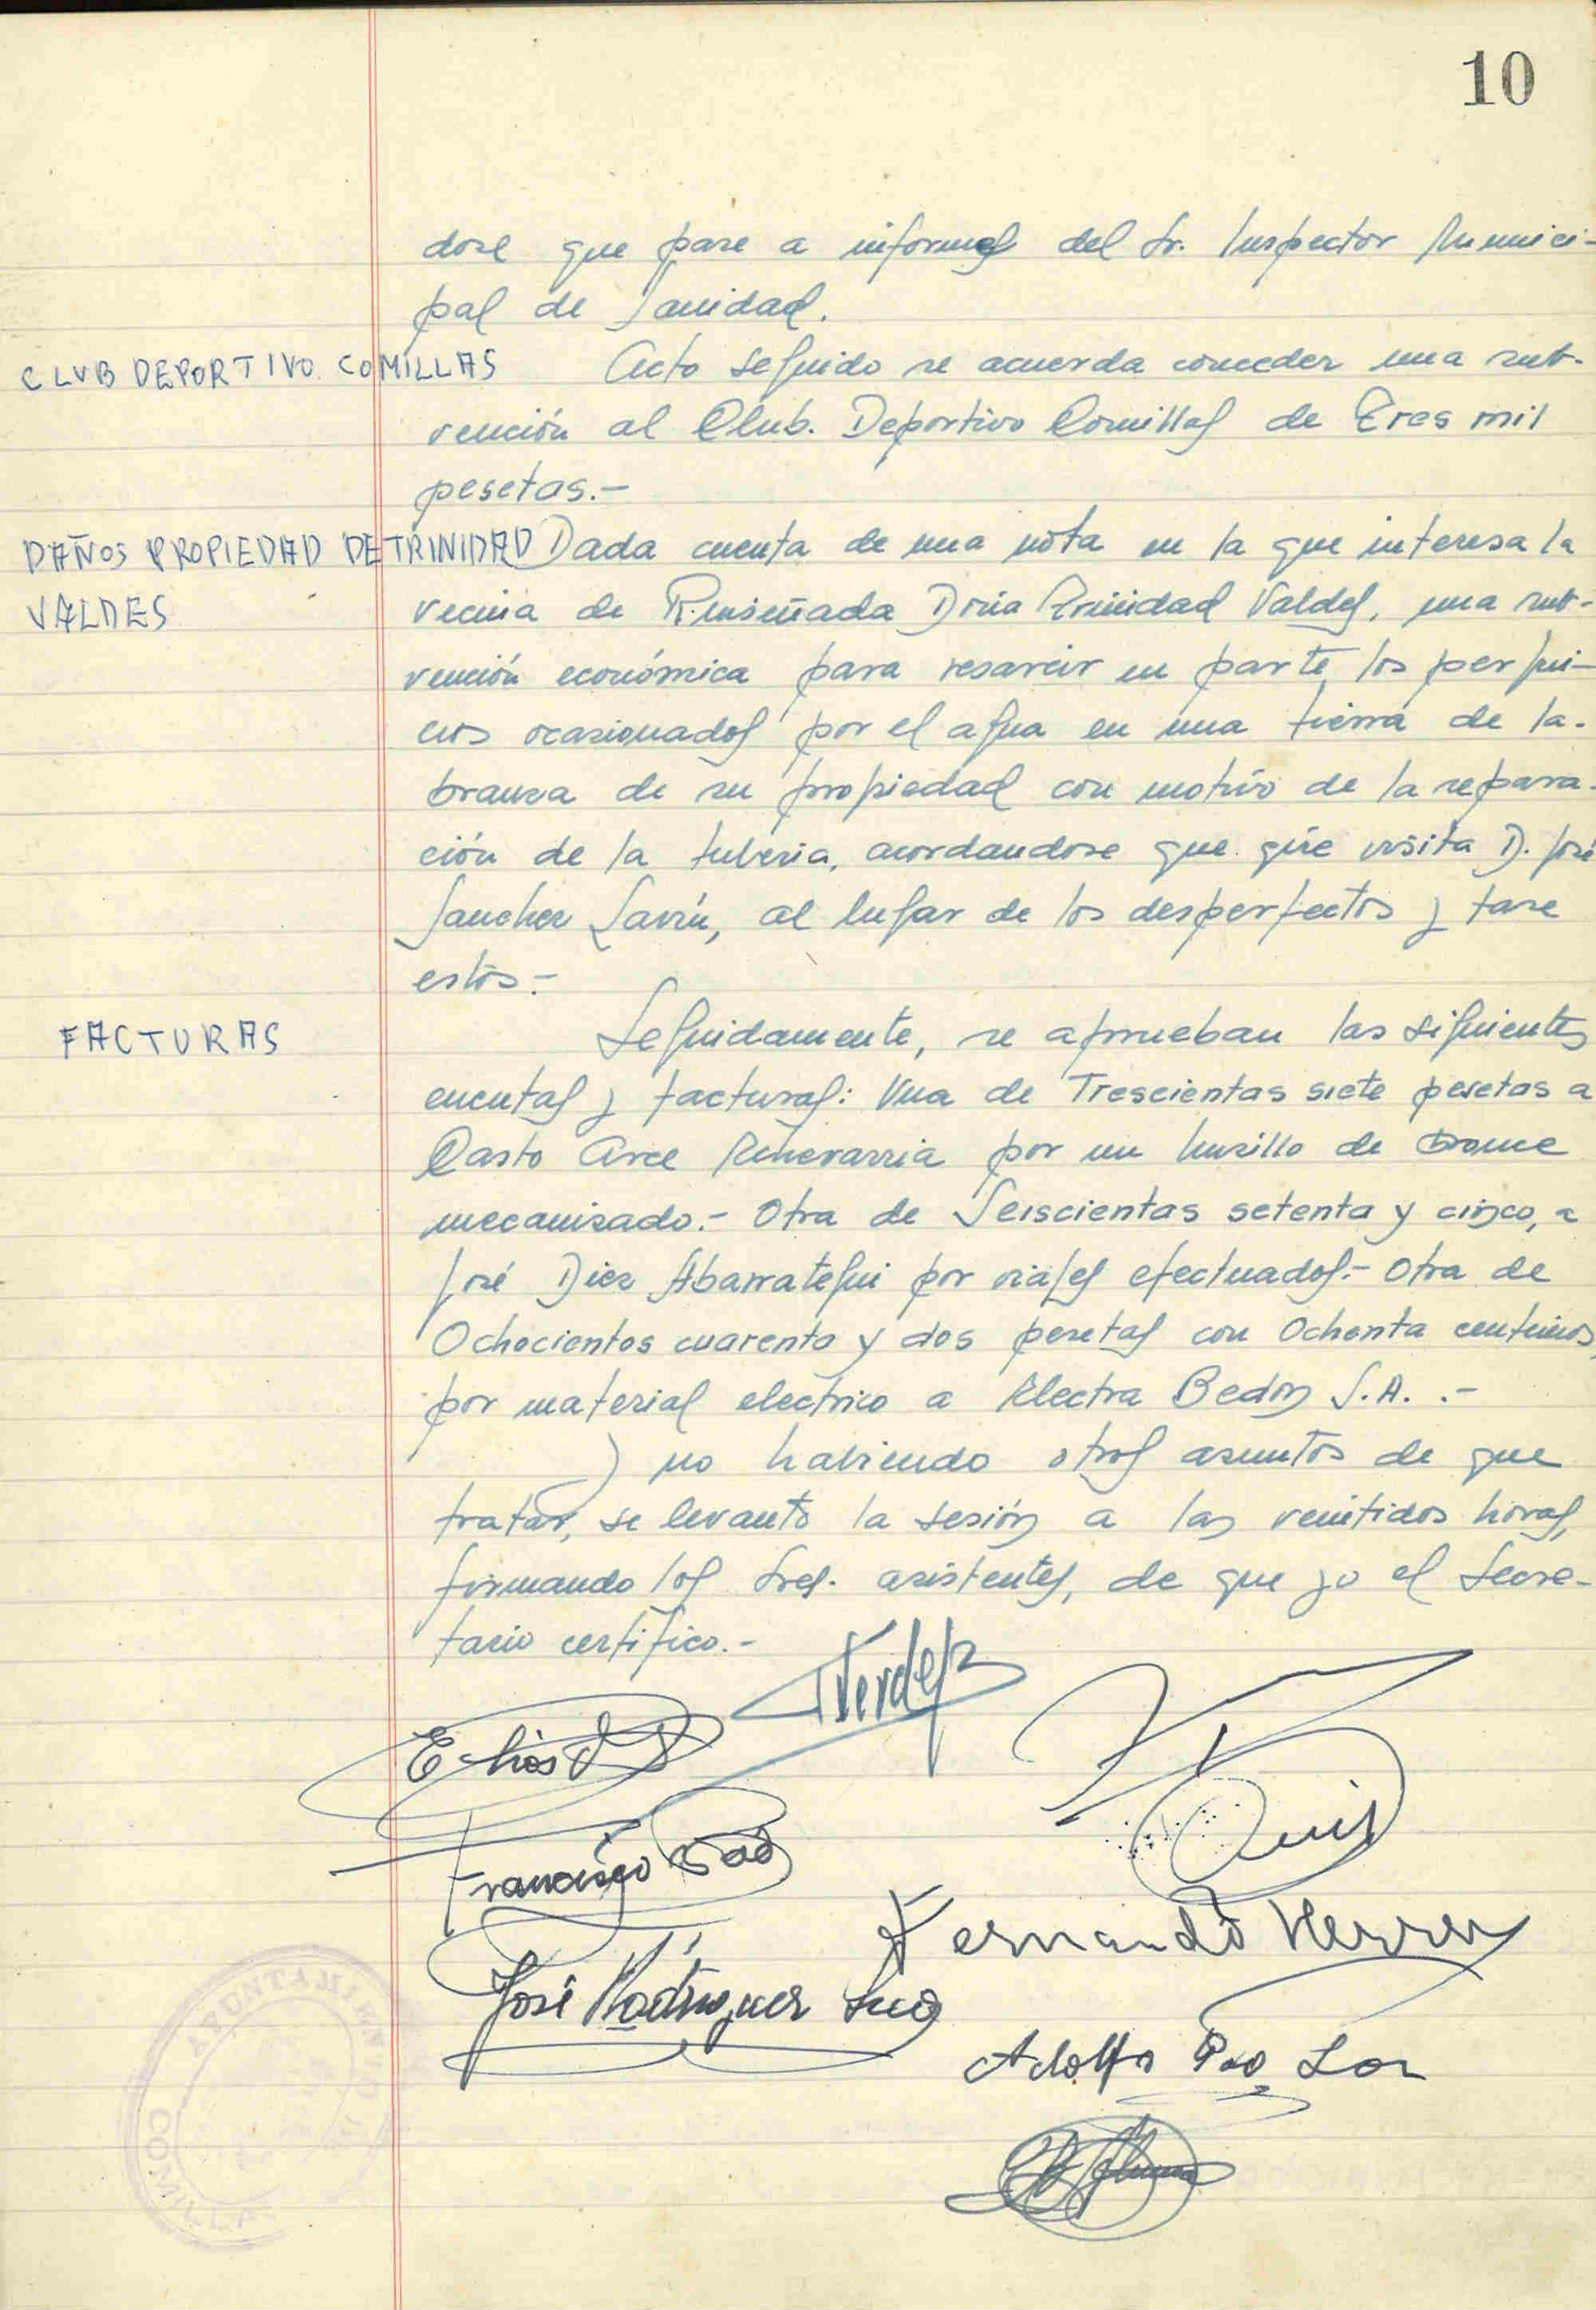 10
dose que pase a informes del Sr. Inspector Munici-
pal de Sanidad.
CLUB DEPORTIVO COMILLAS
Acto seguido se acuerda conceder una sub-
vención al Club. Deportivo Comillas de Tres mil
pesetas.-
DAÑOS PROPIEDAD DE TRINIDAD
VALDES
Dada cuenta de una nota en la que interesa la
vecina de Ruiseñada Doña Trinidad Valdes, una sub-
vención económica para resarcir en parte los perjui-
cios ocasionados por el agua en una tierra de la-
branza de su propiedad con motivo de la repara-
ción de la tuberia, acordandose que gire visita D. José
Sanchez Lavín, al lugar de los desperfectos y tase
estos.-
FACTURAS
Seguidamente, se aprueban las siguientes
cuentas y facturas: Una de Trescientas siete pesetas a
Casto Arce Echevarria por un husillo de bronce
mecanizado.- Otra de Seiscientas setenta y cinco, a
José Diez Abarrategui por viajes efectuados.- Otra de
Ochocientos cuarenta y dos pesetas con Ochenta centimos,
por material electrico a Electra Bedon S.A. .-
Y no habiendo otros asuntos de que
tratar, se levanto la sesión a las veintidos horas,
firmando los Sres. asistentes, de que yo el Secre-
tario certifico.-
Francisco
Fernando Herrera
José Rodriguez
Adolfo
AYUNTAMIENTO
COMILLAS